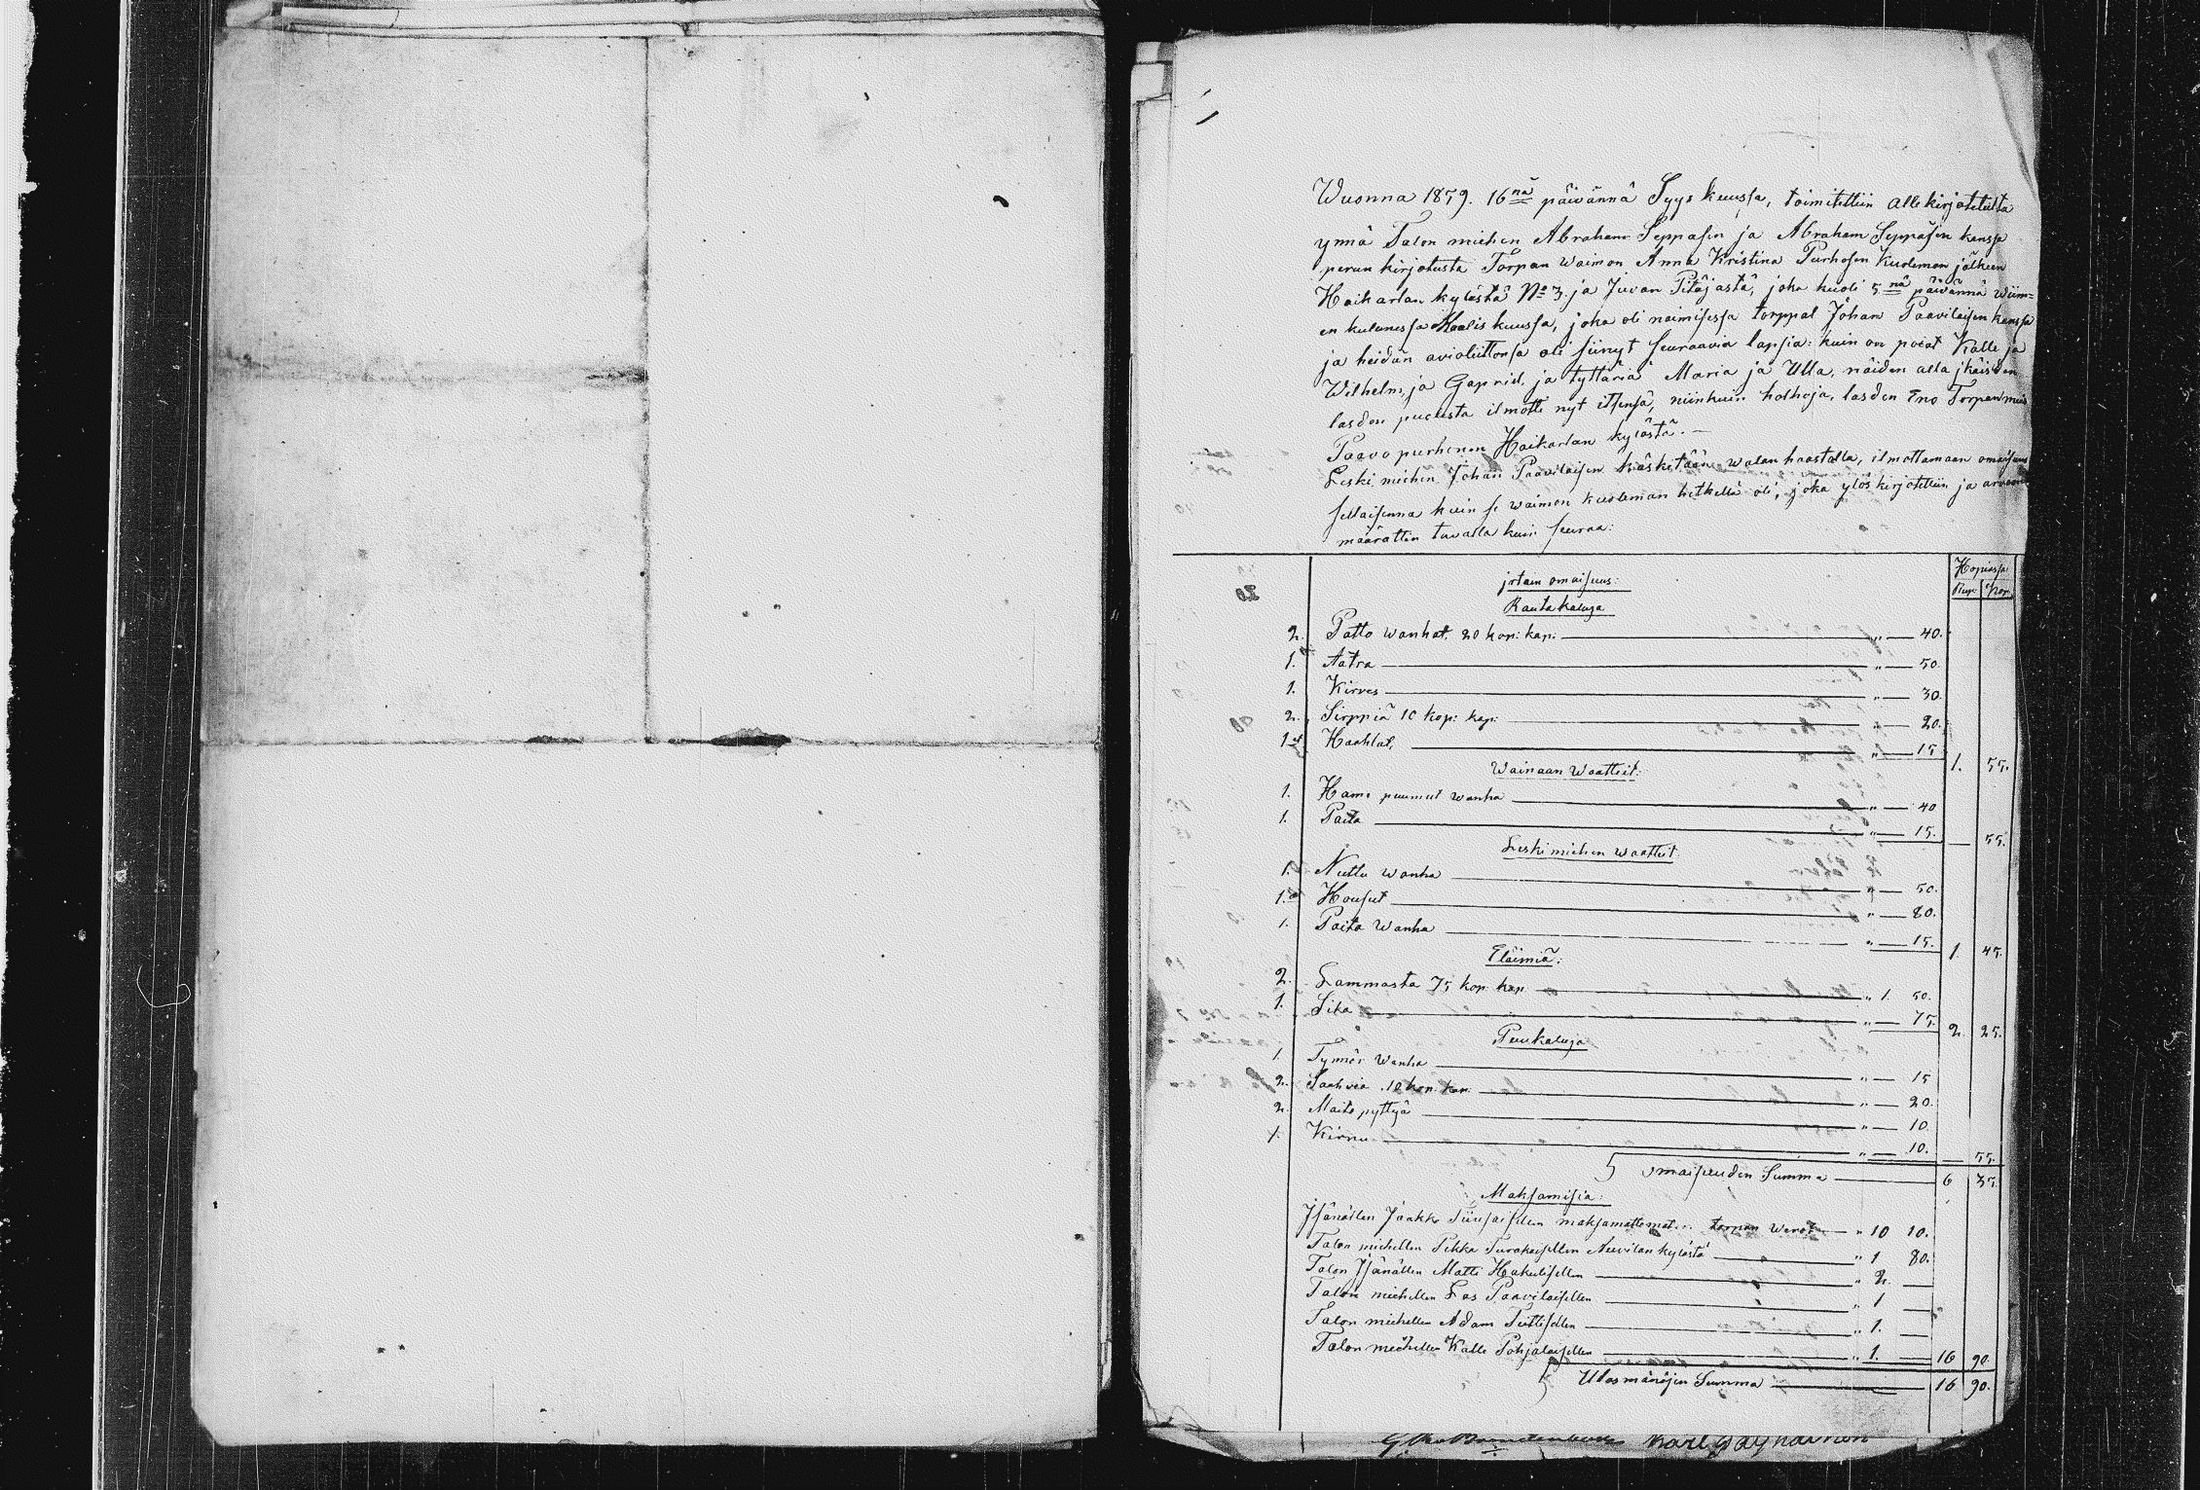 Wuonna 1859. 16nä päivännä Syys kuussa, toimitettiin allekirjotetulta
ynnä Talon miehen Abraham Seppäsen ja Abraham Seppäsen kanssa
perun kirjotusta Torpan Waimon Anna Kristina Purhosen Kuoleman jälkeen
Haikarlan kylästä No 3. ja Juvan Pitäjästä, joka kuoli 5nä päivännä wiim=
en kulunessa Maalis kuussa, joka oli naimisessa torppal Johan Paavilaisen kanssa
ja heidän avioliittonsa oli siinyt seuraavia lapsia: kuin on poiat Kalle ja
Wilhelm, ja Gapriel, ja tyttäriä Maria ja Ulla, näiden alla jkäisten
lasden puolesta ilmotti nyt itsensä, niinkuin holhoja, lasden Eno Torpan mies
Paavo purhonen Haikarlan kylästä. —
Leski miehen Johan Paavilaisen käsketään walan haastolla, ilmottamaan omaisuus
sellaisenna kuin se waimon kuoleman hetkellä oli, joka ylös kirjotettiin ja arvon
määrättin tavalla kuin seuraa:
Hopiassa
jrtain omaisuus: Rup: Kop.
Rauta kaluja
2. Patto wanhat, 20 kop: kap: — „ — 40.
1. Aatra — „ — 50.
1. Kirves — „ — 30.
2. Sirppiä 10 kop: kap: — „ — 20.
1 Haahlat, — „ — 15 1. 55.
Wainaan Waatteit:
1. Hame puumut wanha — „ — 40
1. Paita — „ — 15. — 55.
Leski miehen waatteit.
1. Nuttu wanha — „ — 50.
1. Housut — „ — 80.
1. Paita wanha — „ — 15. 1. 45.
Eläimiä:
2. Lammasta 75 kop: kap — „ 1. 50.
1. Sika — „ — 75. 2. 25.
Puukaluja
1. Tynnör wanha — „ — 15
2. Saahvia .10 kop. kap. — „ — 20.
2. Maito pyttyä — „ — 10.
1. Kirnu — „ — 10. — 55.
Omaisuuden Summa — 6 35.
Maksamisia:
Jsänällen Jaakko maksamattomat torpan Werot — „ 10 10.
Talon miehellen Pekka Turakaisellen Neevilan kylästä — „ 1 80.
Talon Jsänällen Matti Hakulisellen — „ 2. —
Talon miehellen Las Paavilaisellen — „ 1 —
Talon miehellen Adam Tiittisellen — „ 1. —
Talon miehellen Kalle Pohjalaisellen — „ 1. — 16 90.
Ulos mänöjen Summa — 16 90.